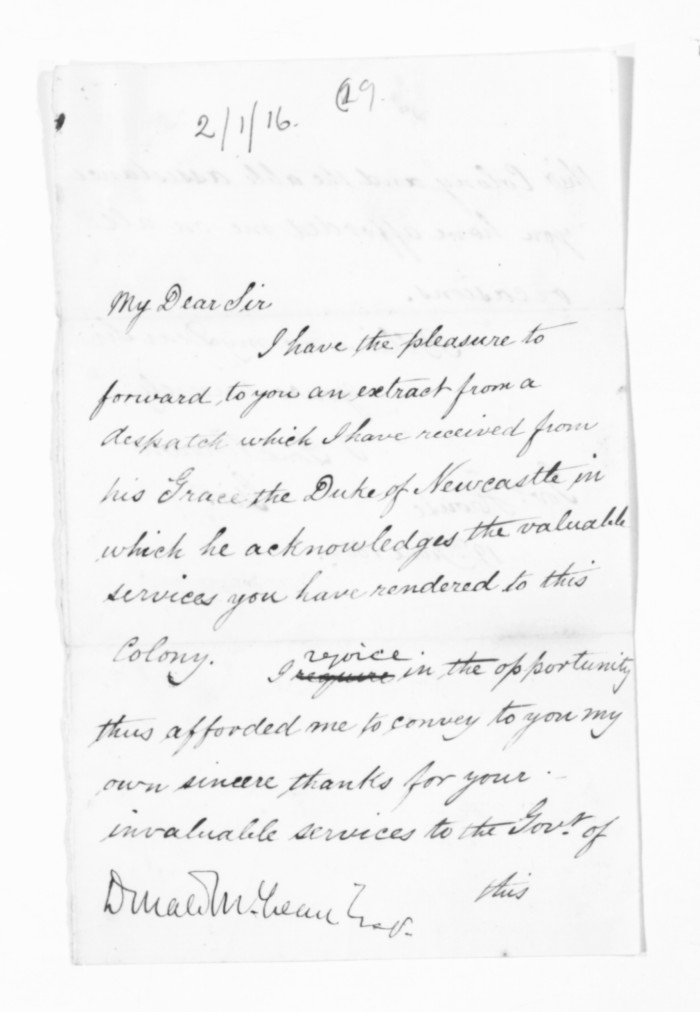 2/1/16. 29.
My Dear Sir
I have the pleasure to
forward to you an extract from a
despatch which I have received from
his Grace the Duke of Newcastle in
which he acknowledges the valuable
services you have rendered to this
Colony.
rejoice
I require in the opportunity
thus afforded me to convey to you my
own sincere thanks for your
invaluable services to the Govt. of
this
Donald McLean Esqr.